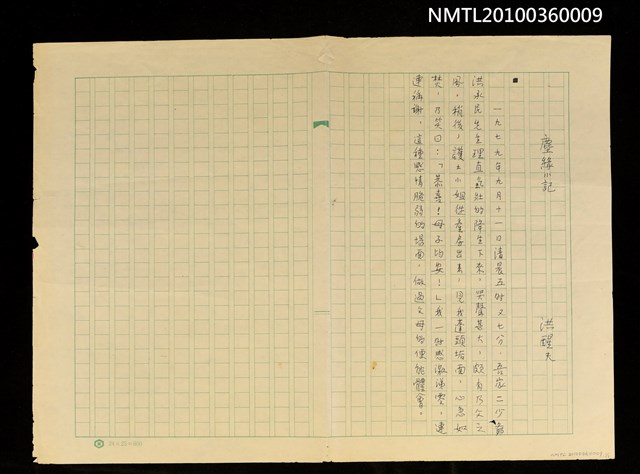 NMTL20100360009
塵緣小記
洪醒夫
一九七九年九月十一日清晨五時又七分，吾家二少爺
洪永民先生理直氣壯的降生下來，哭聲甚大，頗有乃父之
風。稍後，護士小姐從產房出來，見我蓬頭垢面，心急如
焚，乃笑曰：「恭喜！母子均安！」我一時感激涕零，連
連稱謝。這種感情脆弱的場面，做過父母的便能體會。